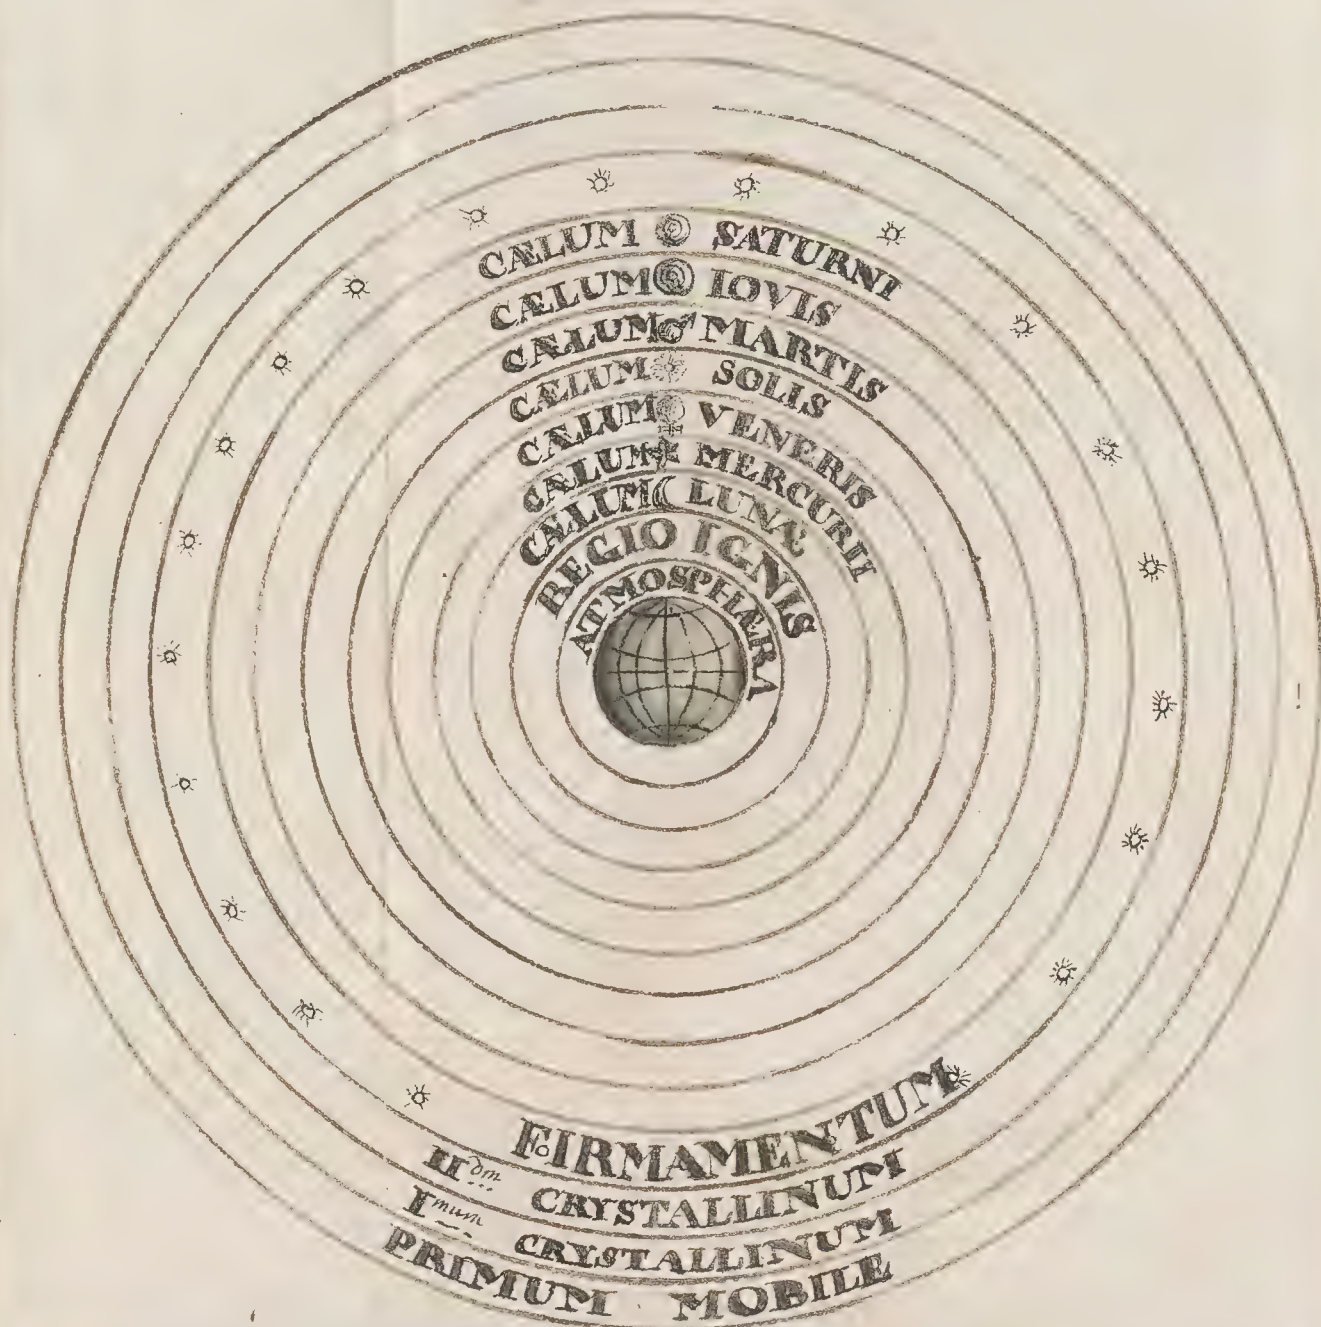 CÆLUM SATURNI
CÆLUM IOVIS
CÆLUM ♂ MARTIS
CÆLUM SOLIS
CÆLUM VENERIS
CÆLUM MERCURII
CÆLUM ☾ LUNÆ
REGIO IGNIS
ATMOSPHÆRA
FIRMAMENTUM
II dm CRYSTALLINUM
I mum CRYSTALLINUM
PRIMUM MOBILE